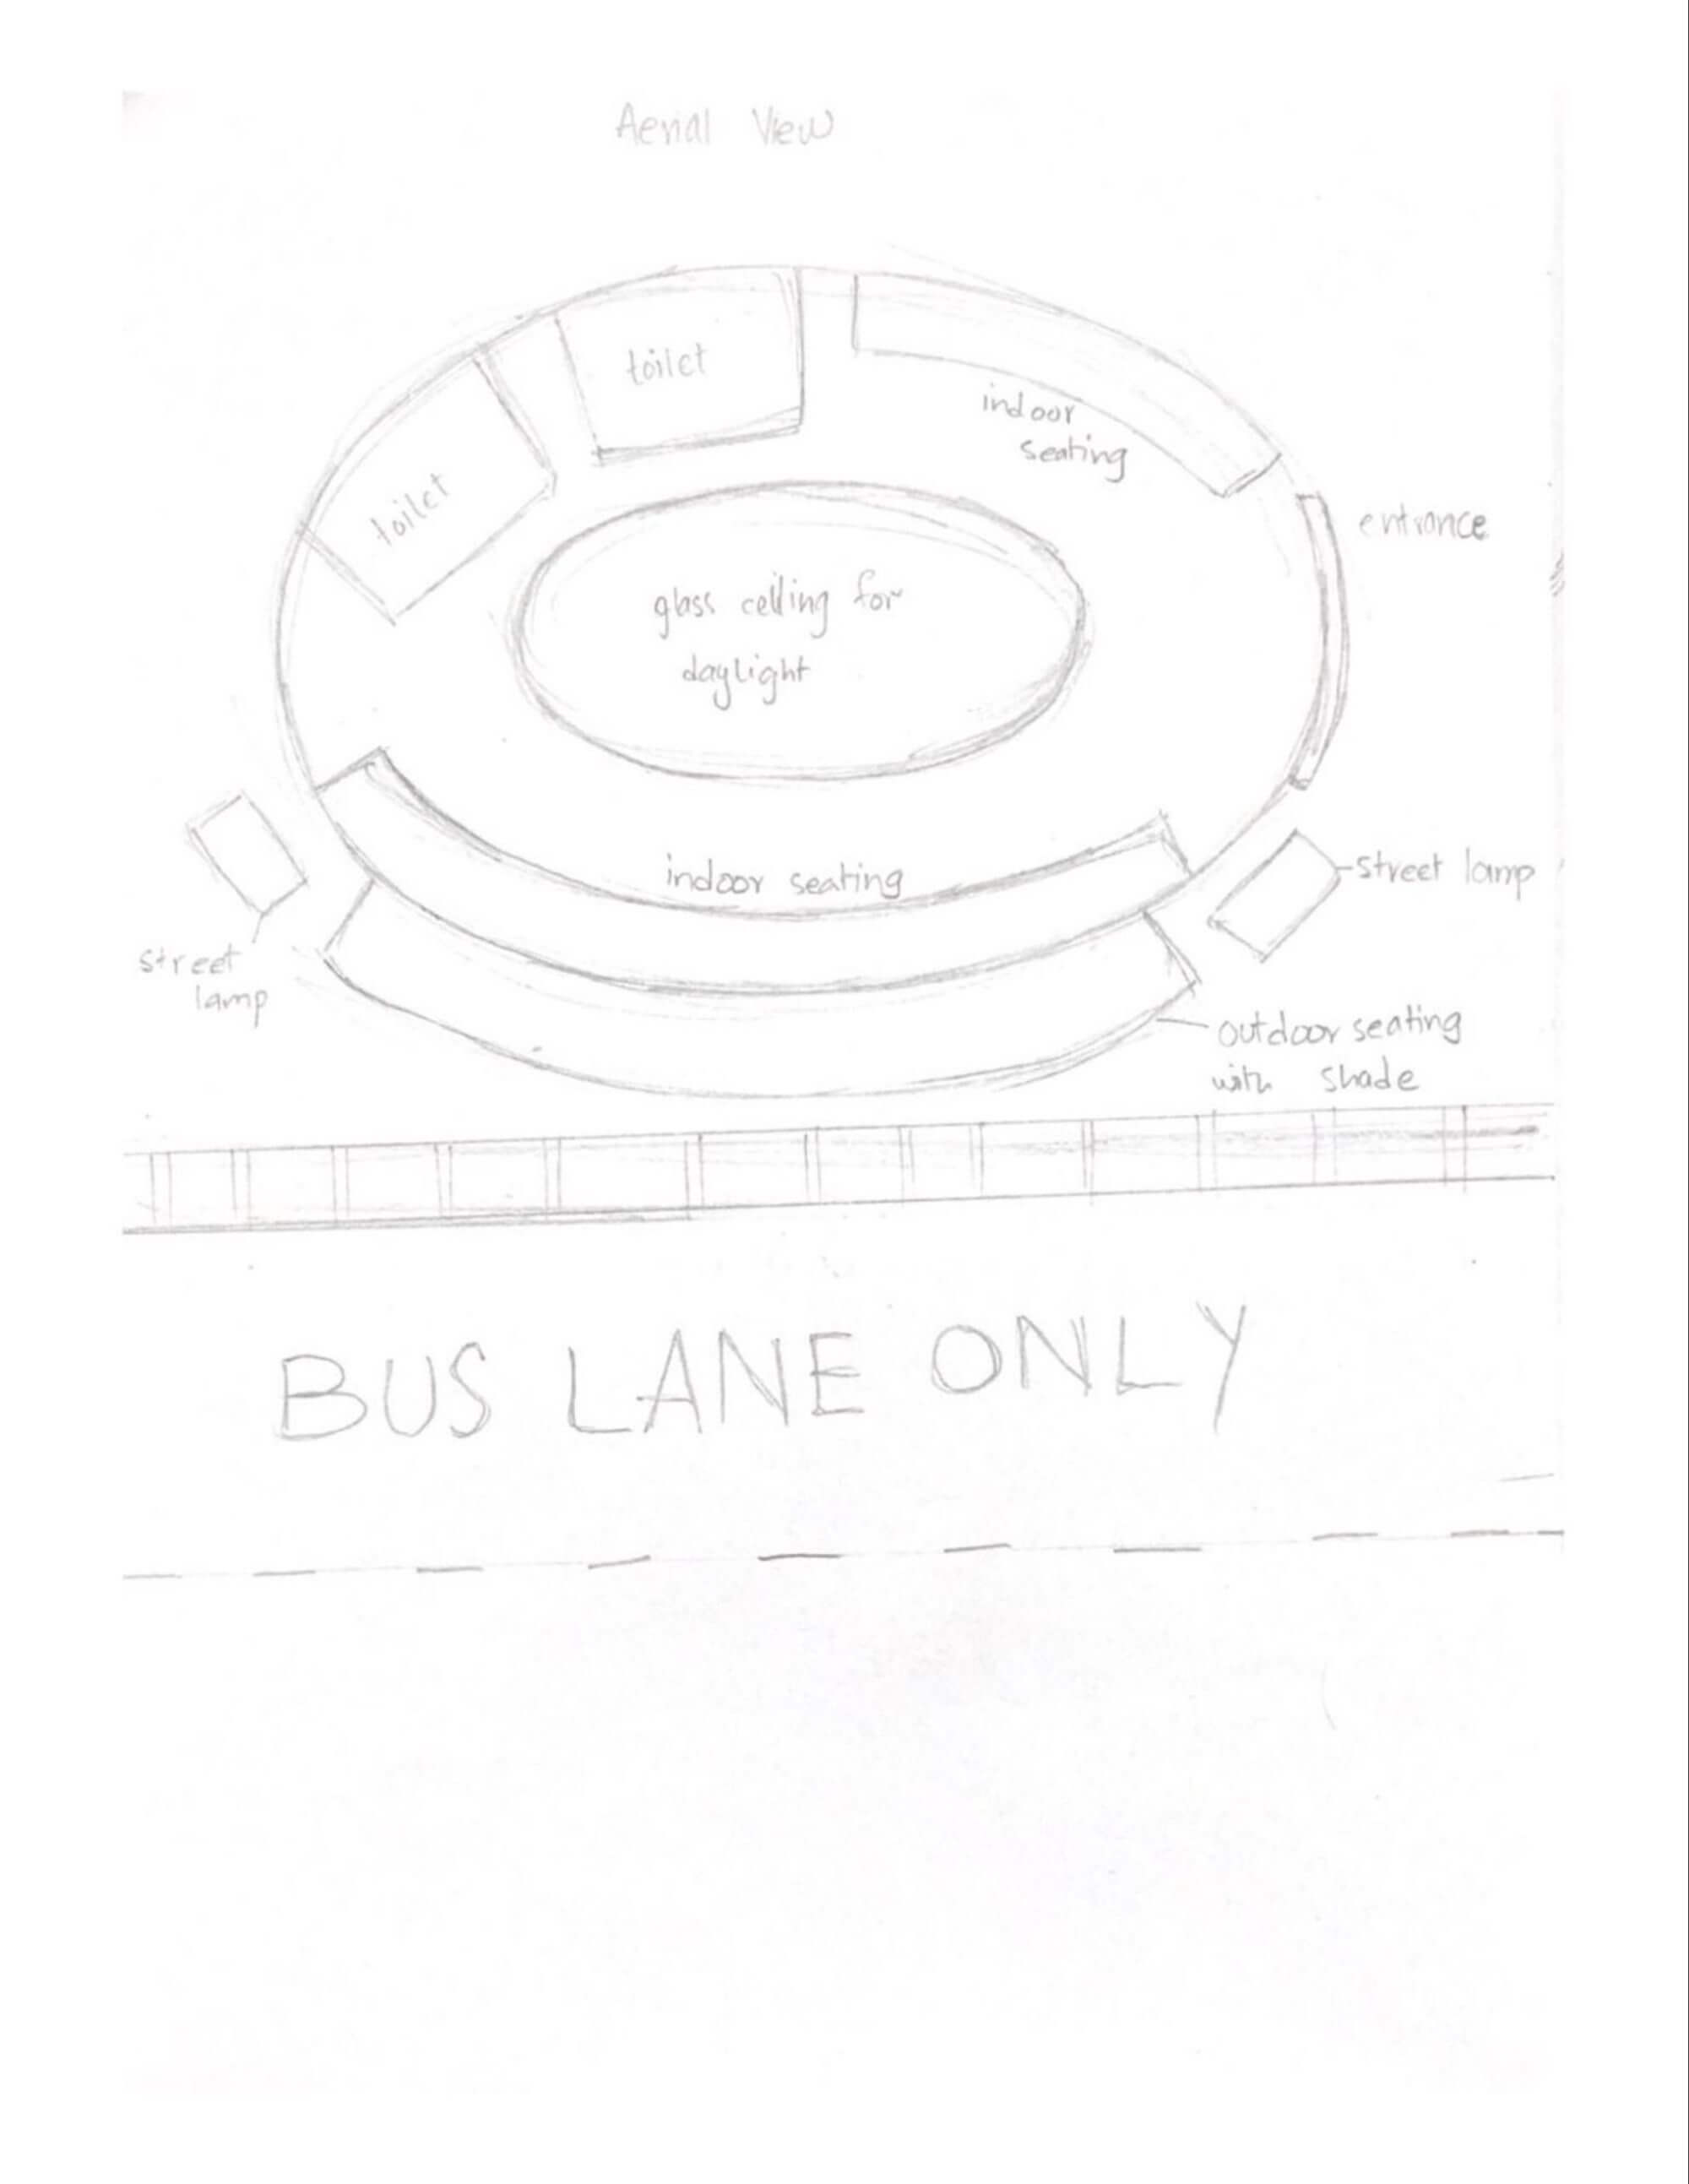 Aerial View
toilet
indoor
seating
toilet
entrance
glass ceiling for
daylight
indoor seating
street lamp
street
lamp
outdoor seating
with shade
BUS LANE ONLY